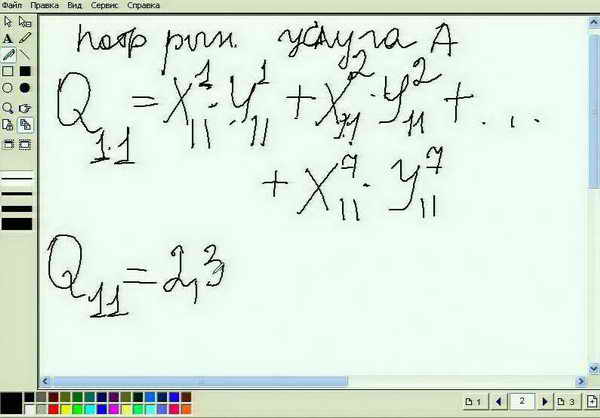 Файл Правка Вид Сервис Справка
потр рын. услуга А
Q₁.₁ = X¹₁₁ · Y¹₁₁ + X²₁₁ · Y²₁₁ + . . .
+ X⁷₁₁ · Y⁷₁₁
Q₁₁ = 2,3
1 2 3